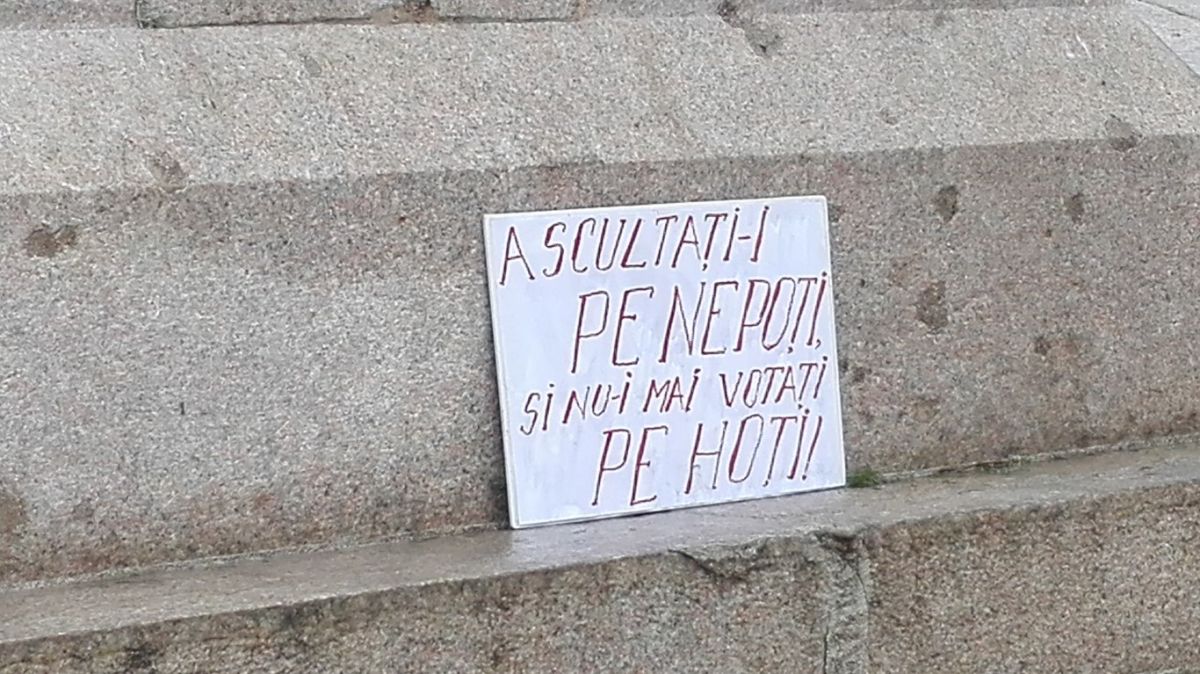 ASCULTAȚI-I
PE NEPOȚI,
ȘI NU-I MAI VOTAȚI
PE HOȚI!